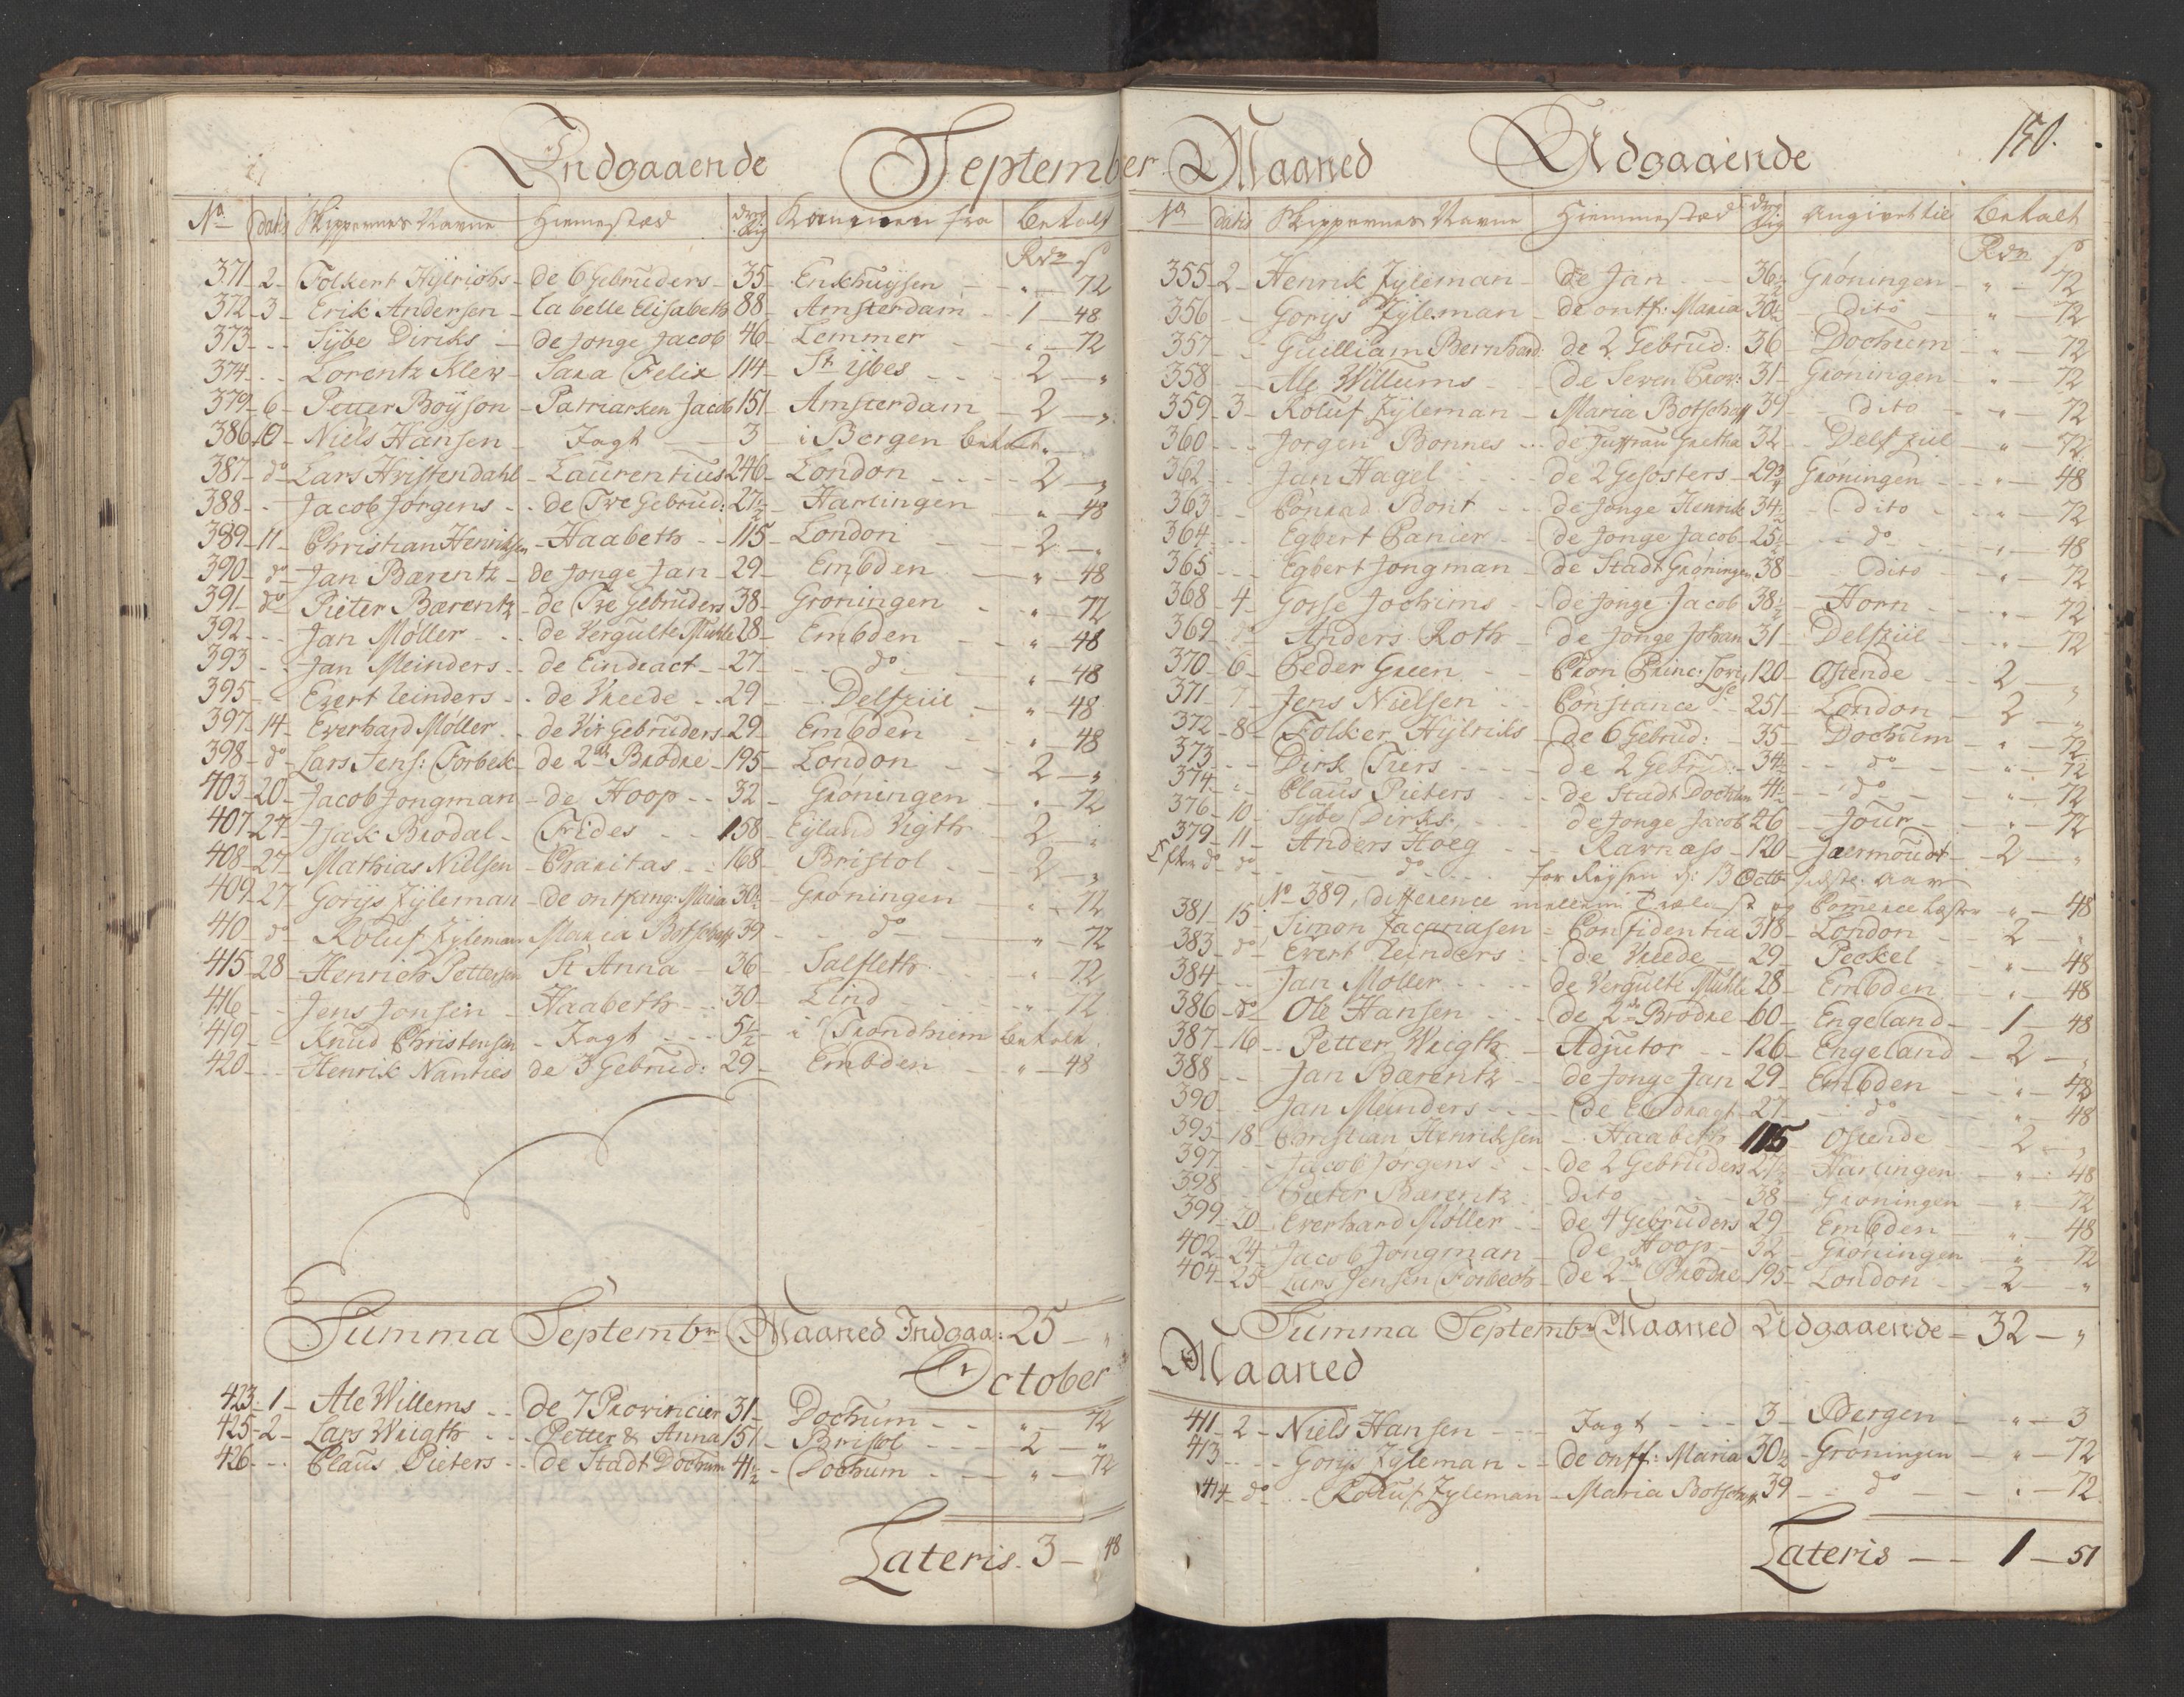 Indgaaende September Maaned Udgaaende 150.
No datis Skippernes Navne Hiemmestæd drægtig Kommen fra betalt
Rdr ß
371 - 2 - Folkert Hylriohs - de 6 Gebruders - 35 - Enkhuysen - " - 72
372 - 3 - Erik Andersen - la belle Elisabeth 88 - Amsterdam - 1 - 48
373 - - - Sybe Diriks - de Jonge Jacob 46 - Lemmer - " - 72
374 - - - Lorentz Klew - Sara Felix 114 - St. ybes - 2 - "
379 - 6 - Petter Boyson - Patriarken Jacob 151 - Amsterdam - 2 - "
386 - 10 - Niels Hansen - Jagt - 3 - i Bergen betalt
387 - do - Lars Hvistendahl - Laurentius 246 - London - 2 - "
388 - - Jacob Jørgens - de Tve Gebrud: 27½ - Harlingen - " - 48
389 - 11 - Christian Henriksen - Haabeth - 115 - London - 2 - "
390 - do - Jan Bærentz - de Jonge Jan - 29 - Embden - " - 48
391 - do - Pieter Bærentz - de Tve Gebruders 38 - Groningen - " - 72
392 - - - Jan Møller - de Vergulte Muhle 28 - Embden - " - 48
393 - - - Jan Meinders - de Eindract - 27 - do - " - 48
395 - - Evert leinders - de Vreede - 29 - Delfziil - " - 48
397 - 14 - Everhard Møller - de Vir Gebruders - 29 - Embden - " - 48
398 - do - Lars Jens: Forbek - de 2de Brødre - 195 - London - 2 - "
403 - 20 - Jacob Jongman - de Hoop - 32 - Grøningen - " - 72
407 - 27 - Isak Brodal - Frides - 158 - Eyland Vigth - 2 - "
408 - 27 - Mathias Nielsen - Charitas - 168 - Bristol - 2 - "
409 - 27 - Gorys Zyleman - de ontfang: Maria 30½ - Grøningen - " - 72
410 - do - Roluf Zyleman Maria Botschaff 39 - do - " - 72
415 - 28 - Henrich Pettersen St Anna - 36 - Salfleth - " - 72
416 - - Jens Jonsen - Haabeth - 30 - Lind - " - 72
419 - - Knud Christensen - Jagt - 5½ - i Trondhiem betalt
420 - - - Henrik Nanties de 3 Gebrud: 29 - Embden - " - 48
Summa Septembr Maaned Indgaa: 25 - "
October
423 - 1 - Ale Willems - de 7 Provincier 31 - Dochum - " - 72
425 - 2 - Lars Wrigth - Petter & Anna 151 - Bristol - 2 - "
426 - - - Claus Pieters - de Stadt Dochum 41½ - Dochum - " - 72
Lateris 3 - 48
No datis Skippernes Navne Hiemmestæd drægtig Angivet til betalt
Rdr ß
355 - 2 - Henrik Zyleman - de Jan - 36½ Grøningen - " - 72
356 - - Gorys Zyleman - de ontf: Maria 30½ - dito - " - 72
357 - - Guilliam Bernhard: de 2 Gebrud: 36 - Dochum - " - 72
358 - - Ale Willums - de Seven Prov: 31 - Grøningen - " - 72
359 - 3 - Roluf Zyleman - Maria Botschaff 39 - dito - " - 72
360 - - - Jørgen Bonnes - de Juffrau Gretha 32 - Delfziil - " - 72
362 - - Jan Hagel - de 2 Gesosters - 29¾ Grøningen - " - 48
363 - - Conrad Bont - de Jonge Henrik 34½ - dito - " - 72
364 - - Egbert Panier - de Jonge Jacob 25½ - do - " - 48
365 - - - Egbert Jongman - de Stadt Grøningen 38 - dito - " - 72
368 - 4 - Gosse Jochims - de Jonge Jacob 38½ - Horn - " - 72
369 - do - Anders Roth - de Jonge Johan 31 - Delfziil - " - 72
370 - 6 - Peder Green - Cron Princ: Lovise 120 - Ostende - 2 - "
371 - 7 - Jens Nielsen - Constance - 251 - London - 2 - "
372 - 8 - Folker Hylriks - de 6 Gebrud: - 35 - Dochum - " - 72
373 - - - Dirk Tiers - de 2 Gebrud: - 34½ - do - " - 72
374 - - - Claus Pieters - de Stadt Dochum 41½ - do - " - 72
376 - 10 - Sybe Dirks: - de Jonge Jacob 46 - Jour - " - 72
379 - 11 - Anders Hoeg - Ravnæss - 120 - Jaermoudt - 2 - "
Efter do do - do - for Reysen d: 13 Octbr sidste aar
No 389, difference mellem Trælast og Comerce læster - " - 48
381 - 15 - Simon Zacariasen - Confidentia 318 - London - 2 - "
383 - do - Evert leinders - de Vrede - 29 - Peckel - " - 48
384 - - Jan Møller - de Vergulte Muhle 28 - Embden - " - 48
386 - do - Ole Hansen - de 2de Brødre - 60 - Engeland - 1 - 48
387 - 16 - Petter Wrigth - Adjutor - 126 - Engeland - 2 - "
388 - - Jan Bærentz - de Jonge Jan 29 - Embden - " - 48
390 - - Jan Meinders - de Eindragt 27 - do - " - 48
395 - 18 - Christian Henriksen - Haabeth 115 Ostende - 2 - "
397 - - Jacob Jørgens - de 2 Gebruders 27½ - Harlingen - " - 48
398 - - Pieter Bærentz - dito - 38 - Groningen - " - 72
399 - 20 - Everhard Møller - de 4 Gebruders 29 - Embden - " - 48
402 - 24 - Jacob Jongman - de Hoop - 32 - Grøningen - " - 72
404 - 25 - Lars Jensen Forbech - de 2de Brødre - 195 - London - 2 - "
Summa Septembr Maaned Udgaaende - 32 - "
Maaned
411 - 2 - Niels Hansen - Jagt - 3 - Bergen - " - 3
413 - - - Gorys Zyleman - de onff: Maria 30½ - Grøningen - " - 72
414 - do - Roluf Zyleman - Maria Botschaff 39 - do - " - 72
Lateris - 1 - 51